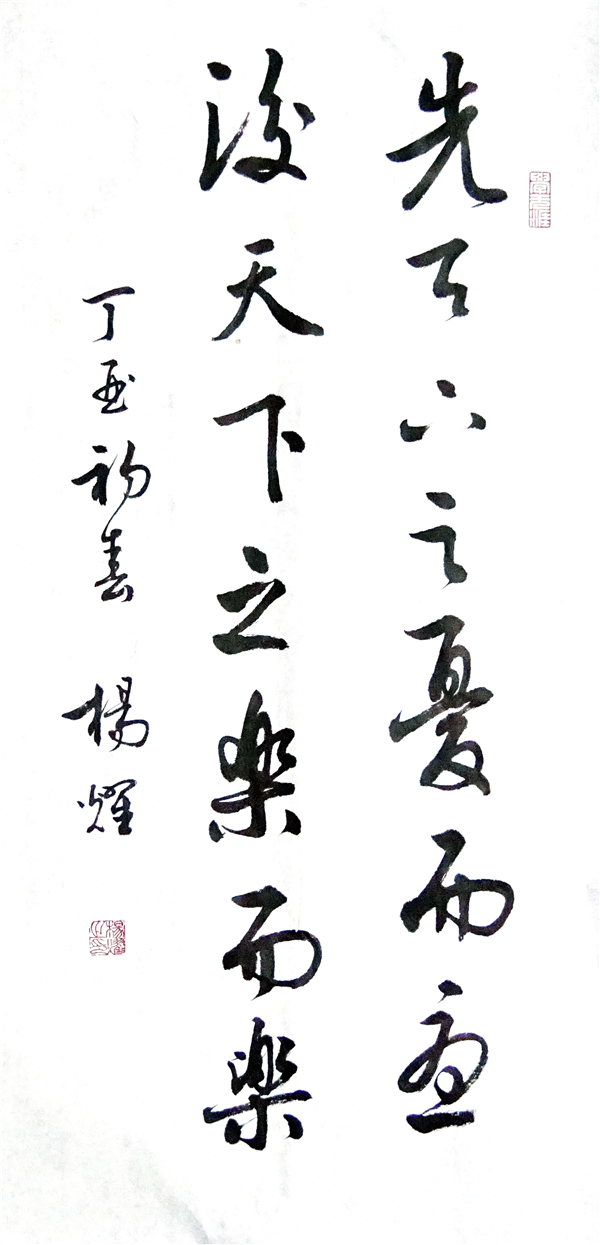 先天下之憂而憂
後天下之樂而樂
丁亥初春 楊耀